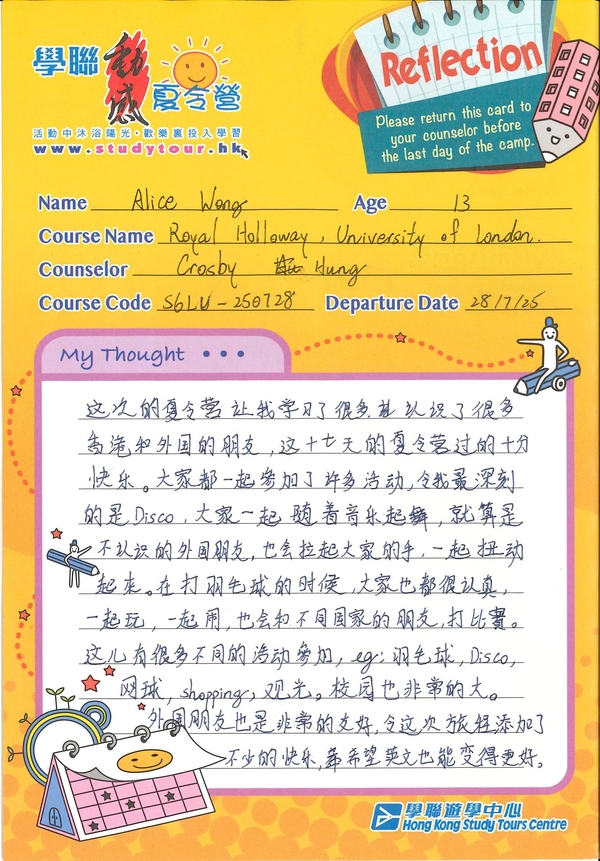 學聯
動感
夏令營
活動中沐浴陽光·歡樂裏投入學習
www.studytour.hk
Reflection
Please return this card to
your counselor before
the last day of the camp.
Name Alice Wong Age 13
Course Name Royal Holloway, University of London.
Counselor Crosby Hung
Course Code S6LU-250728 Departure Date 28/7/25
My Thought • • •
这次的夏令营让我学习了很多,认识了很多
香港和外国的朋友,这十七天的夏令营过的十分
快乐。大家都一起參加了许多活动,令我最深刻
的是Disco,大家一起随着音乐起舞,就算是
不认识的外国朋友,也会拉起大家的手,一起扭动
起來。在打羽毛球的时候,大家也都很认真,
一起玩,一起闹,也会和不同国家的朋友,打比賽。
这儿有很多不同的活动參加,eg:羽毛球,Disco,
网球,shopping,观光。校园也非常的大。
外国朋友也是非常的友好,令这次旅程添加了
不少的快乐,希望英文也能变得更好。
學聯遊學中心
Hong Kong Study Tours Centre